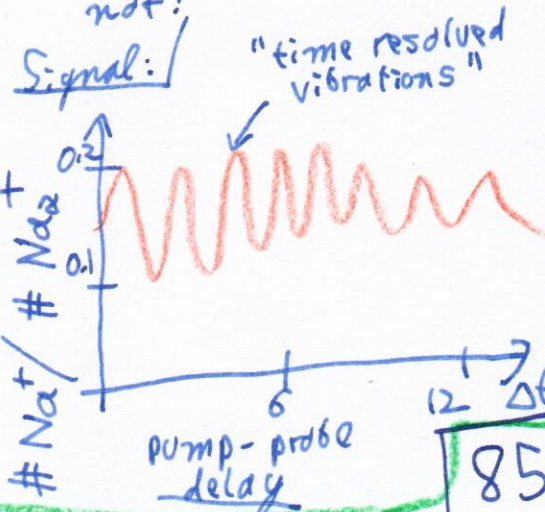 not:
Signal:
"time resolved
vibrations"
0.2
0.1
# Na⁺ / # Na₂⁺
6
12 Δt
pump-probe
delay
85